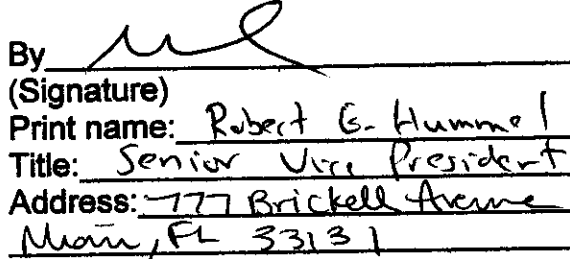 By
(Signature)
Print name: Robert G. Hummel
Title: Senior Vice President
Address: 777 Brickell Avenue
Miami, FL 33131